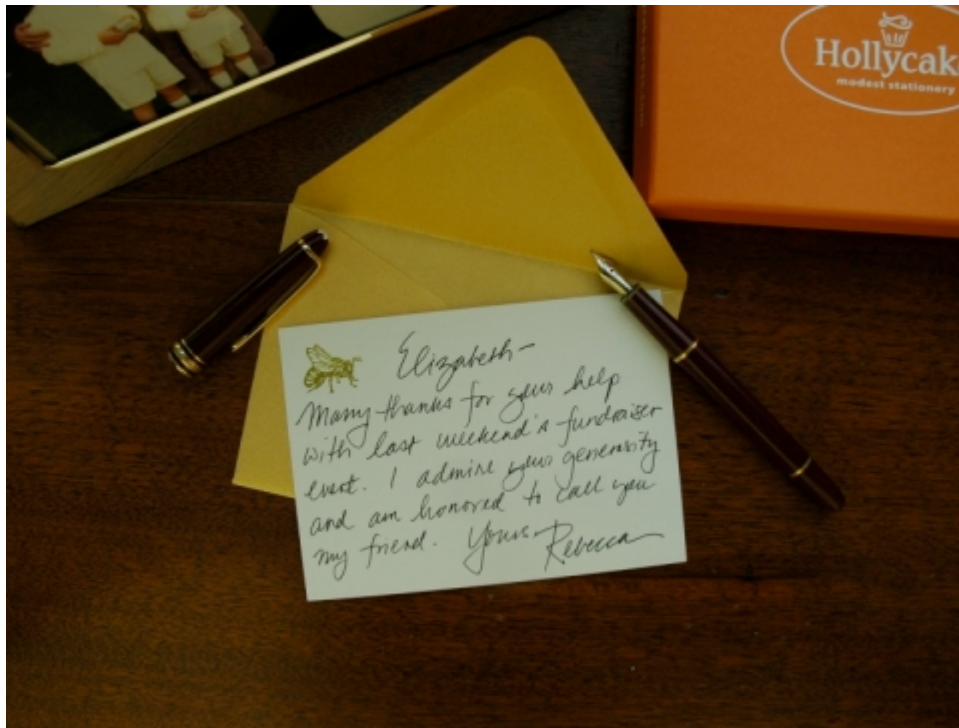 Hollycak
modest stationery
Elizabeth-
Many thanks for your help
with last weekend's fundraiser
event. I admire your generosity
and am honored to call you
my friend. Yours- Rebecca